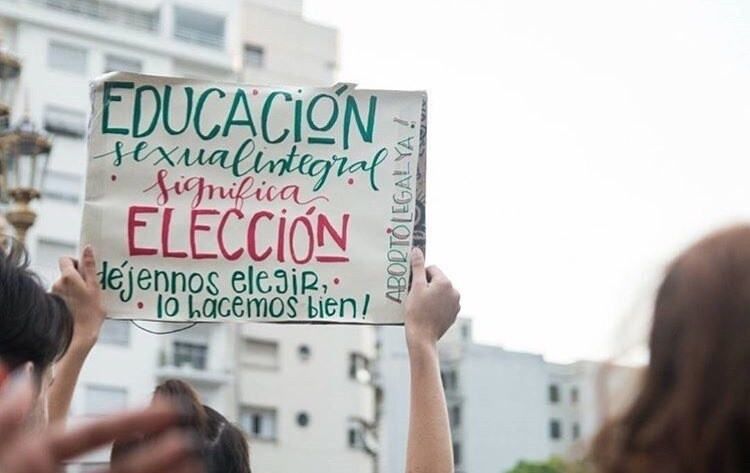 EDUCACIÓN
sexual integral
significa
ELECCIÓN
déjennos elegir,
lo hacemos bien!
ABORTO LEGAL YA!